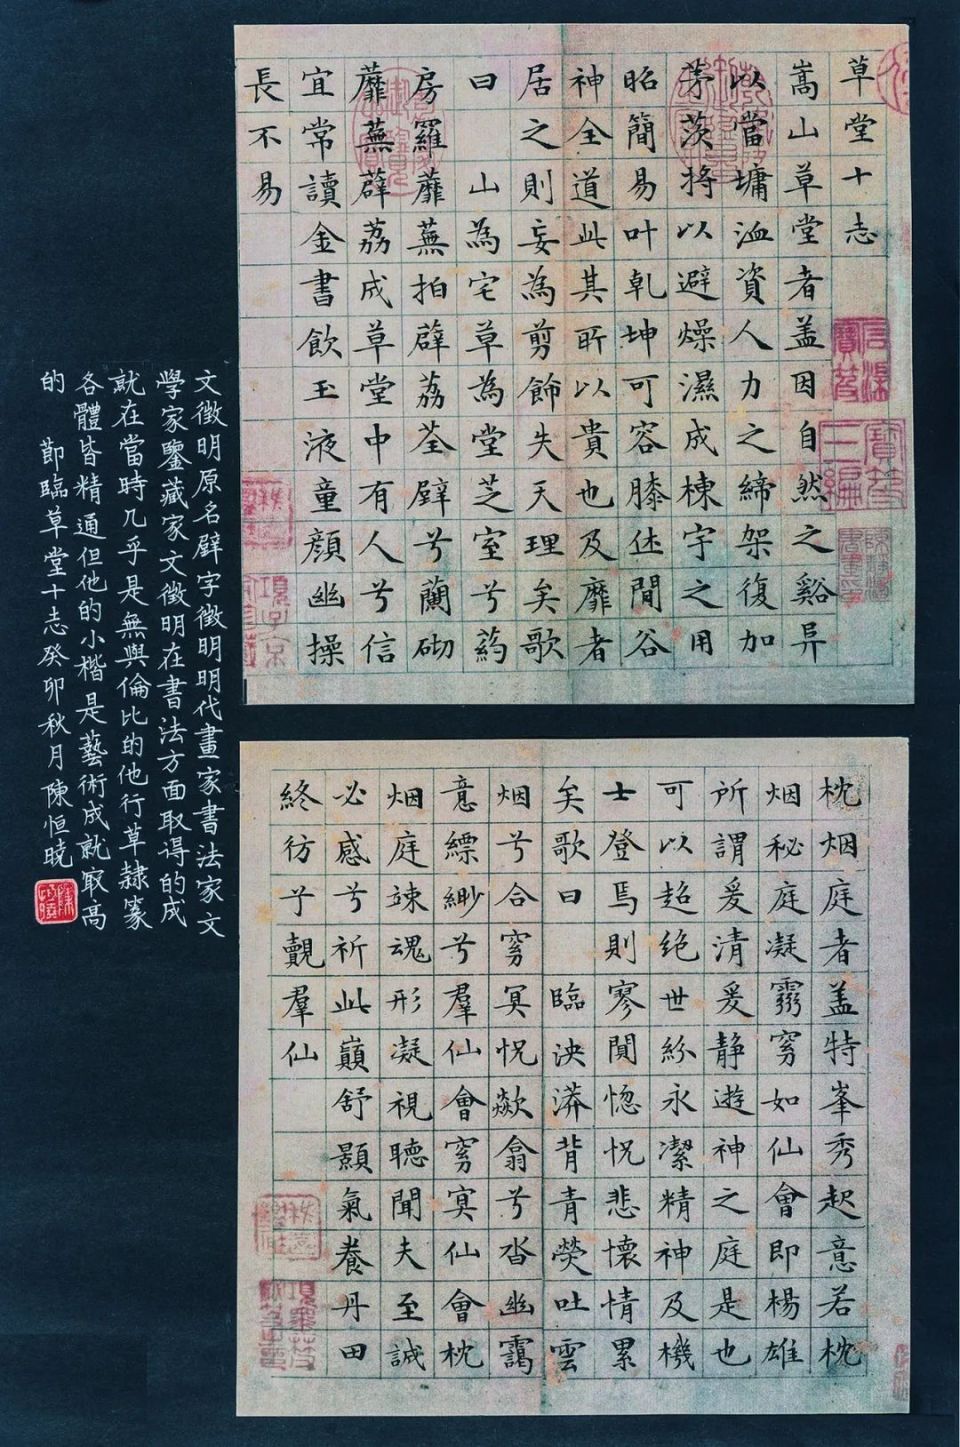 草堂十志
嵩山草堂者盖因自然之谿异
以當墉洫資人力之締架復加
茅茨将以避燥濕成棟宇之用
昭簡易叶乾坤可容膝休閒谷
神全道此其所以貴也及靡者
居之則妄為剪餙失天理矣歌
曰 山為宅草為堂芝室兮葯
房羅蘼蕪拍薜荔荃壁兮蘭砌
蘼蕪薜荔成草堂中有人兮信
宜常讀金書飲玉液童顏幽操
長不易
枕烟庭者盖特峯秀起意若枕
烟秘庭凝霛窅如仙會即楊雄
所謂爰清爰静遊神之庭是也
可以超绝世紛永潔精神及機
士登焉則寥閴惚怳悲懷情累
矣歌曰 臨泱漭背青熒吐雲
烟兮合窅冥怳欻翕兮沓幽靄
意縹緲兮羣仙會窅冥仙會枕
烟庭竦魂形凝視聴聞夫至誠
必感兮祈此巔舒顥氣養丹田
終彷子覿羣仙
文徵明原名壁字徵明明代畫家書法家文
學家鑒藏家文徵明在書法方面取得的成
就在當時几乎是無與倫比的他行草隸篆
各體皆精通但他的小楷是藝術成就最高
的 節臨草堂十志癸卯秋月陳恒曉